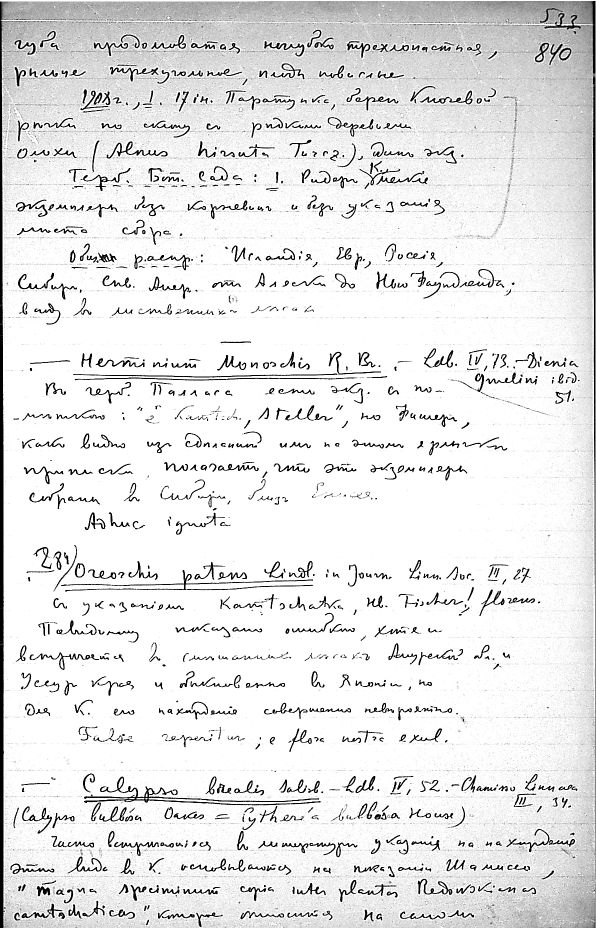 533
840
губа продолговатая неглубоко трехлопастная,
рыльце трехугольное, плоды повислые.
1908 г., I. 17 in. Паратунка, берег Ключевой
речки по склону съ редкими деревьями
ольхи (Alnus hirsuta Turcz.), один экз.
Герб. Бот. Сада: I. Ридер,
экземпляры безъ корневищ и безъ указанія
места сбора.
Общ. распр.: Исландія, Евр. Россія,
Сибирь, Сев. Амер. от Аляски до Нью Фаундленда;
въ лиственных лесах
— Herminium Monorchis R. Br. — Ldb. IV, 73. — Dienia
Gmelini ibid.
51.
Въ герб. Палласа есть экз. съ по-
меткою: "e Kamtsch., Steller", но Фишер,
какъ видно изъ сделанной имъ на этом ярлычке
приписки, полагает, что эти экземпляры
собраны въ Сибири, близъ
Adhuc ignota
284) Oreorchis patens Lindl. in Journ. Linn. Soc. III, 27
съ указаніем Kamtschatka, hb. Fischer! florens.
Повидимому показано ошибочно, хотя и
встречается въ смешанных лесахъ Амурской обл., и
Уссур. края и обыкновенно въ Японіи, но
для К. его нахожденіе совершенно невероятно.
False reperitur; e flora nostra exul.
— Calypso borealis Salisb. — Ldb. IV, 52. — Chamisso Linnaea
III, 34.
(Calypso bulbosa Oakes = Cytherea bulbosa House)
Часто встречающіеся въ литературе указанія на нахожденіе
этого вида въ К. основываются на показаніи Шамиссо,
"magna speciminum copia inter plantas Redowskianas
camtschaticas", которое относится на самом